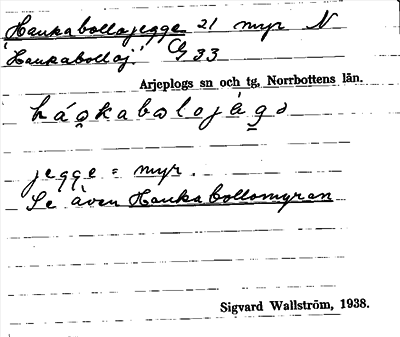 Haukabollojegge 21 myr N
'Haukabolloj' G 33
Arjeplogs sn och tg, Norrbottens län.
háo̯kabolojàg̯ə
jegge = myr.
Se även Haukabollomyran
Sigvard Wallström, 1938.